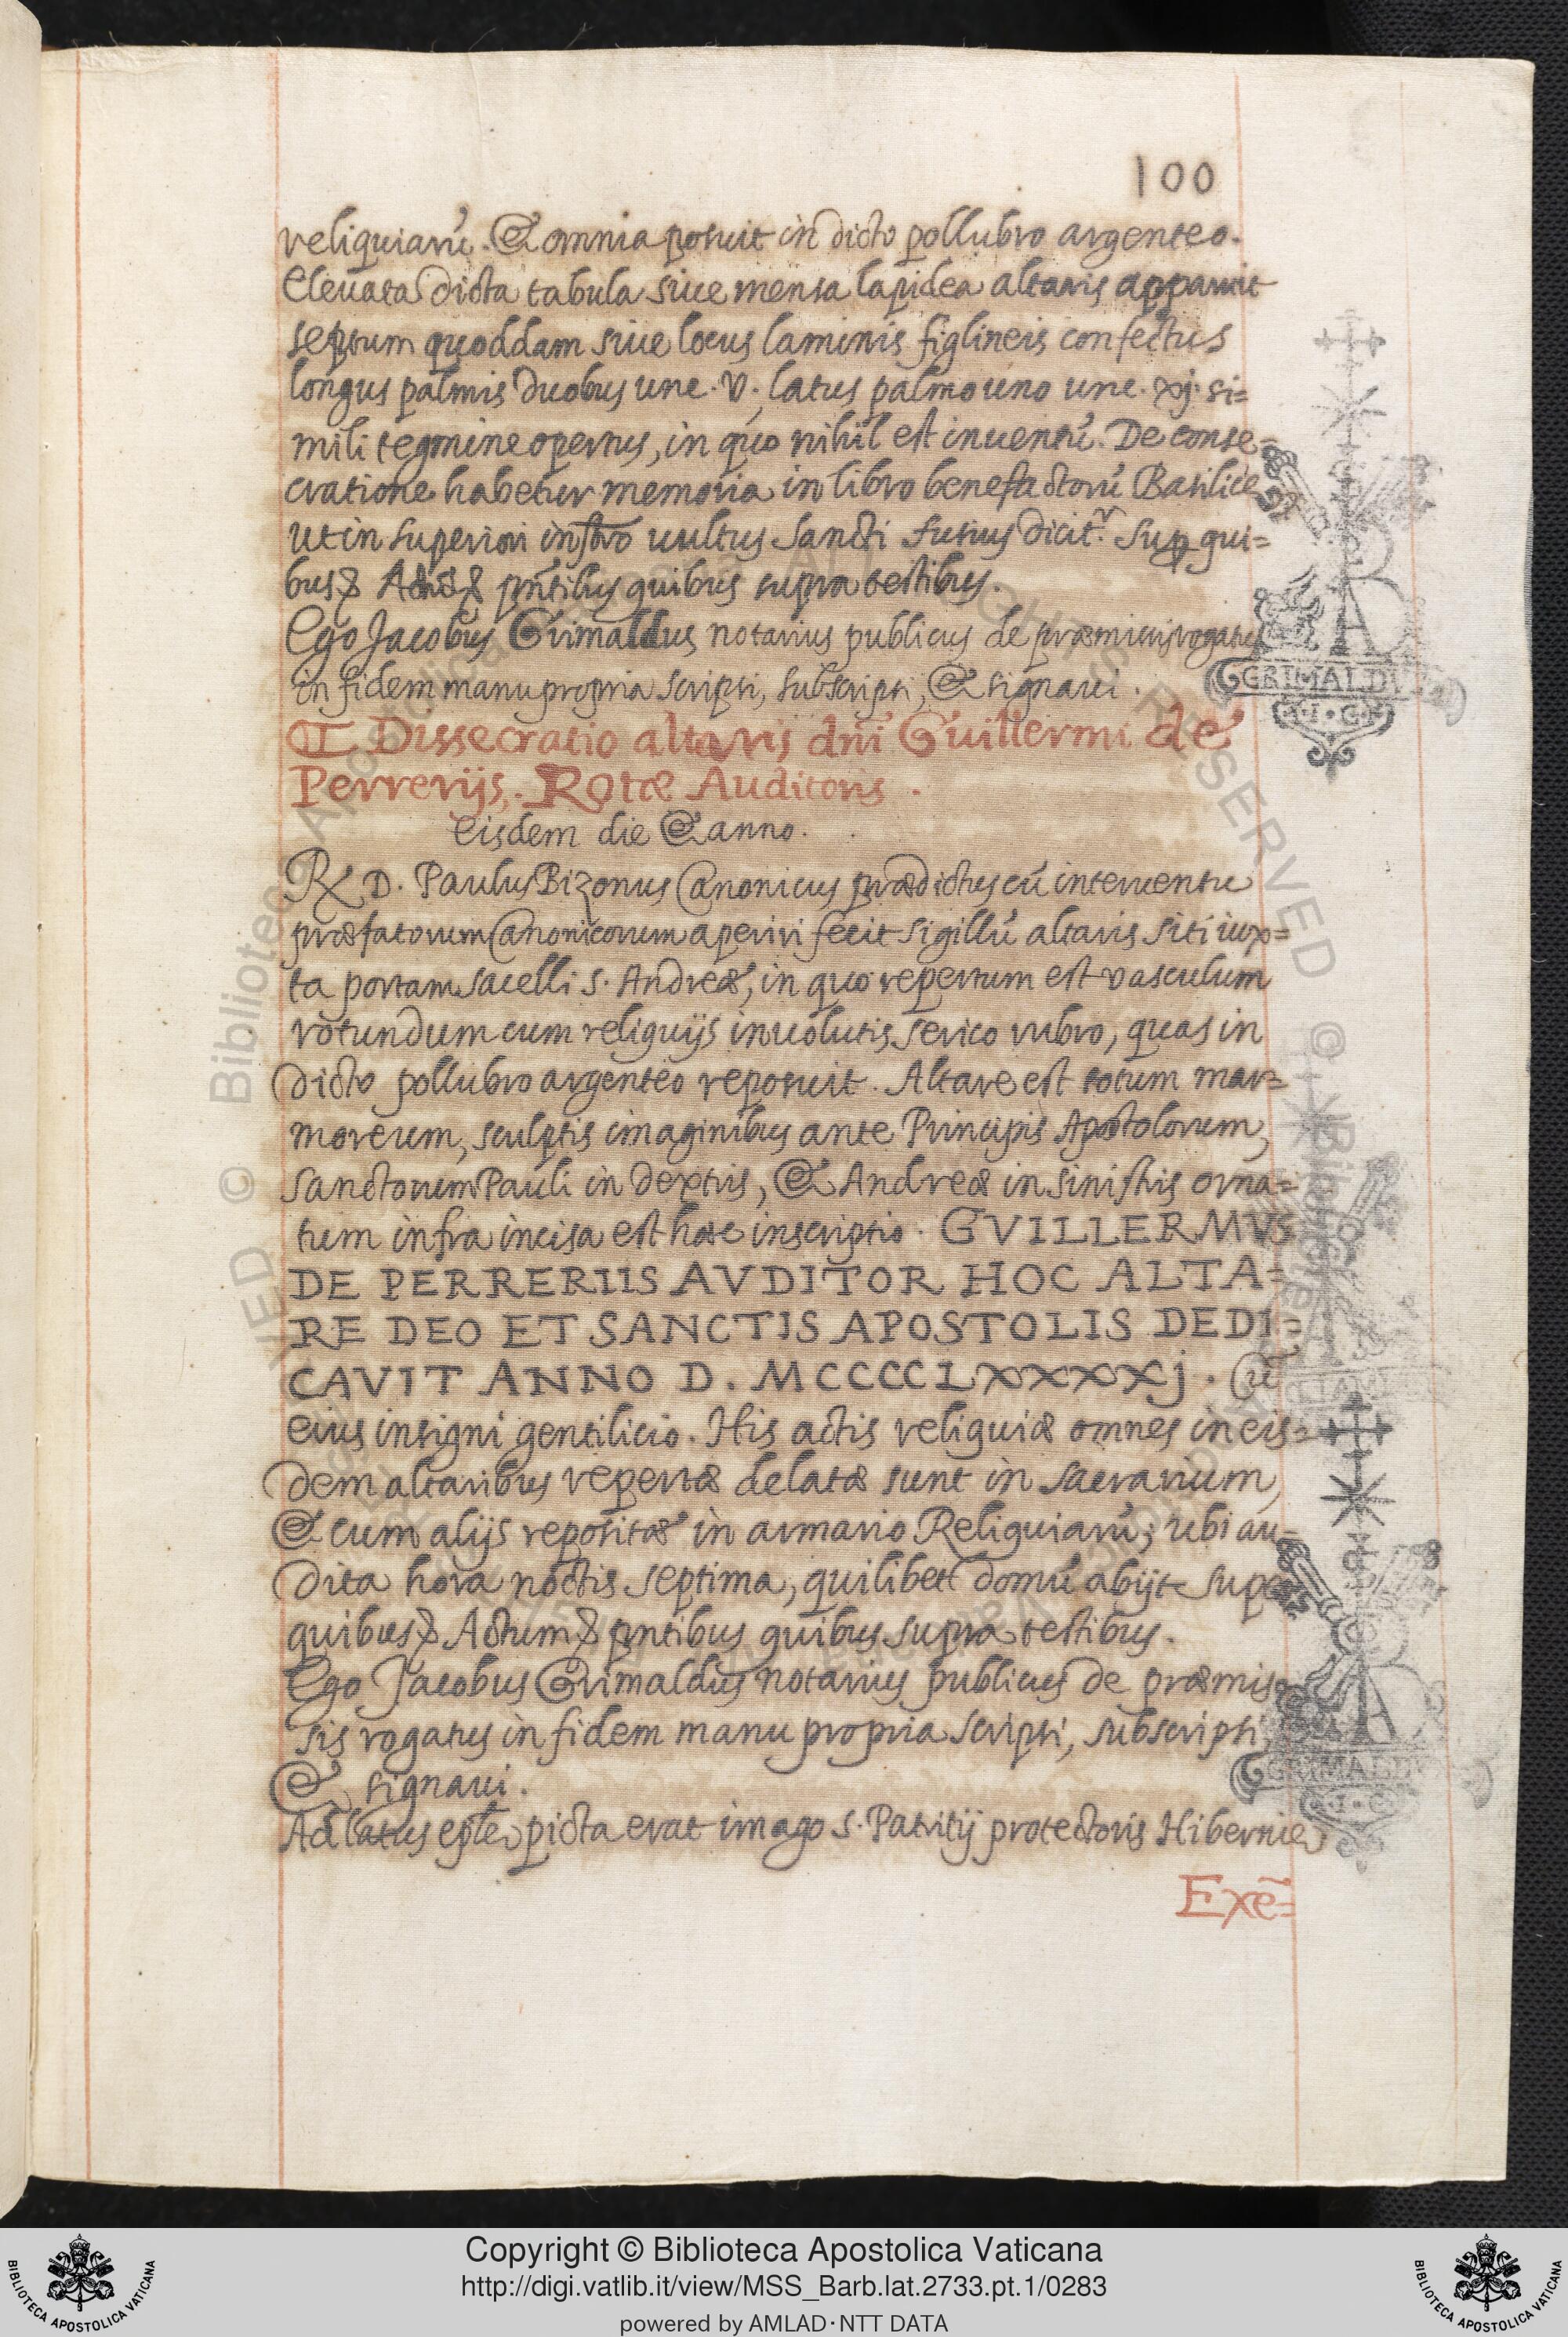 100
reliquiarũ. & omnia posuit in dicto pollubro argenteo.
Eleuata dicta tabula siue mensa lapidea altaris apparuit
septum quoddam siue locus laminis figlineis confectus
longus palmis duobus unc. v., latus palmo uno unc. xj. si=
mili tegmine opertus, in quo nihil est inuentũ. De conse=
cratione habetur memoria in libro benefactorũ Basilice
ut in superiori instro uultus sancti fusius dicitr. Sup qui=
bus pñtibus quibus supra testibus.
Ego Jacobus Grimaldus notarius publicus de præmissis rogatus
in fidem manu propria scripsi, subscripsi, & signaui.
GRIMALDVS
Dissecratio altaris dñi Guillermi de
Perrerijs. Rotæ Auditoris.
Eisdem die & anno.
R. D. Paulus Bizonus Canonicus prædictus cũ interuentu
præfatorum Canonicorum aperiri fecit sigillũ altaris siti iux=
ta portam sacelli s. Andreæ, in quo repertum est vasculum
rotundum cum reliquijs inuolutis serico rubro, quas in
dicto pollubro argenteo reposuit. Altare est totum mar=
moreum, sculptis imaginibus ante Principis Apostolorum,
sanctorum Pauli in dextris, & Andreæ in sinistris orna=
tum infra incisa est hæc inscriptio. GVILLERMVS
DE PERRERIIS AVDITOR HOC ALTA=
RE DEO ET SANCTIS APOSTOLIS DEDI=
CAVIT ANNO D. MCCCCLXXXXj. Cũ
eius insigni gentilicio. His actis reliquiæ omnes in eis=
dem altaribus repertæ delatæ sunt in sacrarium,
& cum alijs repositæ in armario Reliquiarũ; ubi au=
dita hora noctis septima, quilibet domũ abijt super
quibus Actum pntibus quibus supra testibus.
Ego Jacobus Grimaldus notarius publicus de præmis=
sis rogatus in fidem manu propria scripsi, subscripsi,
& signaui.
GRIMALDVS
Ad latus epłe picta erat imago s. Patritij protectoris Hibernie
Exẽ=
Copyright © Biblioteca Apostolica Vaticana
http://digi.vatlib.it/view/MSS_Barb.lat.2733.pt.1/0283
powered by AMLAD·NTT DATA
BIBLIOTECA APOSTOLICA VATICANA
BIBLIOTECA APOSTOLICA VATICANA